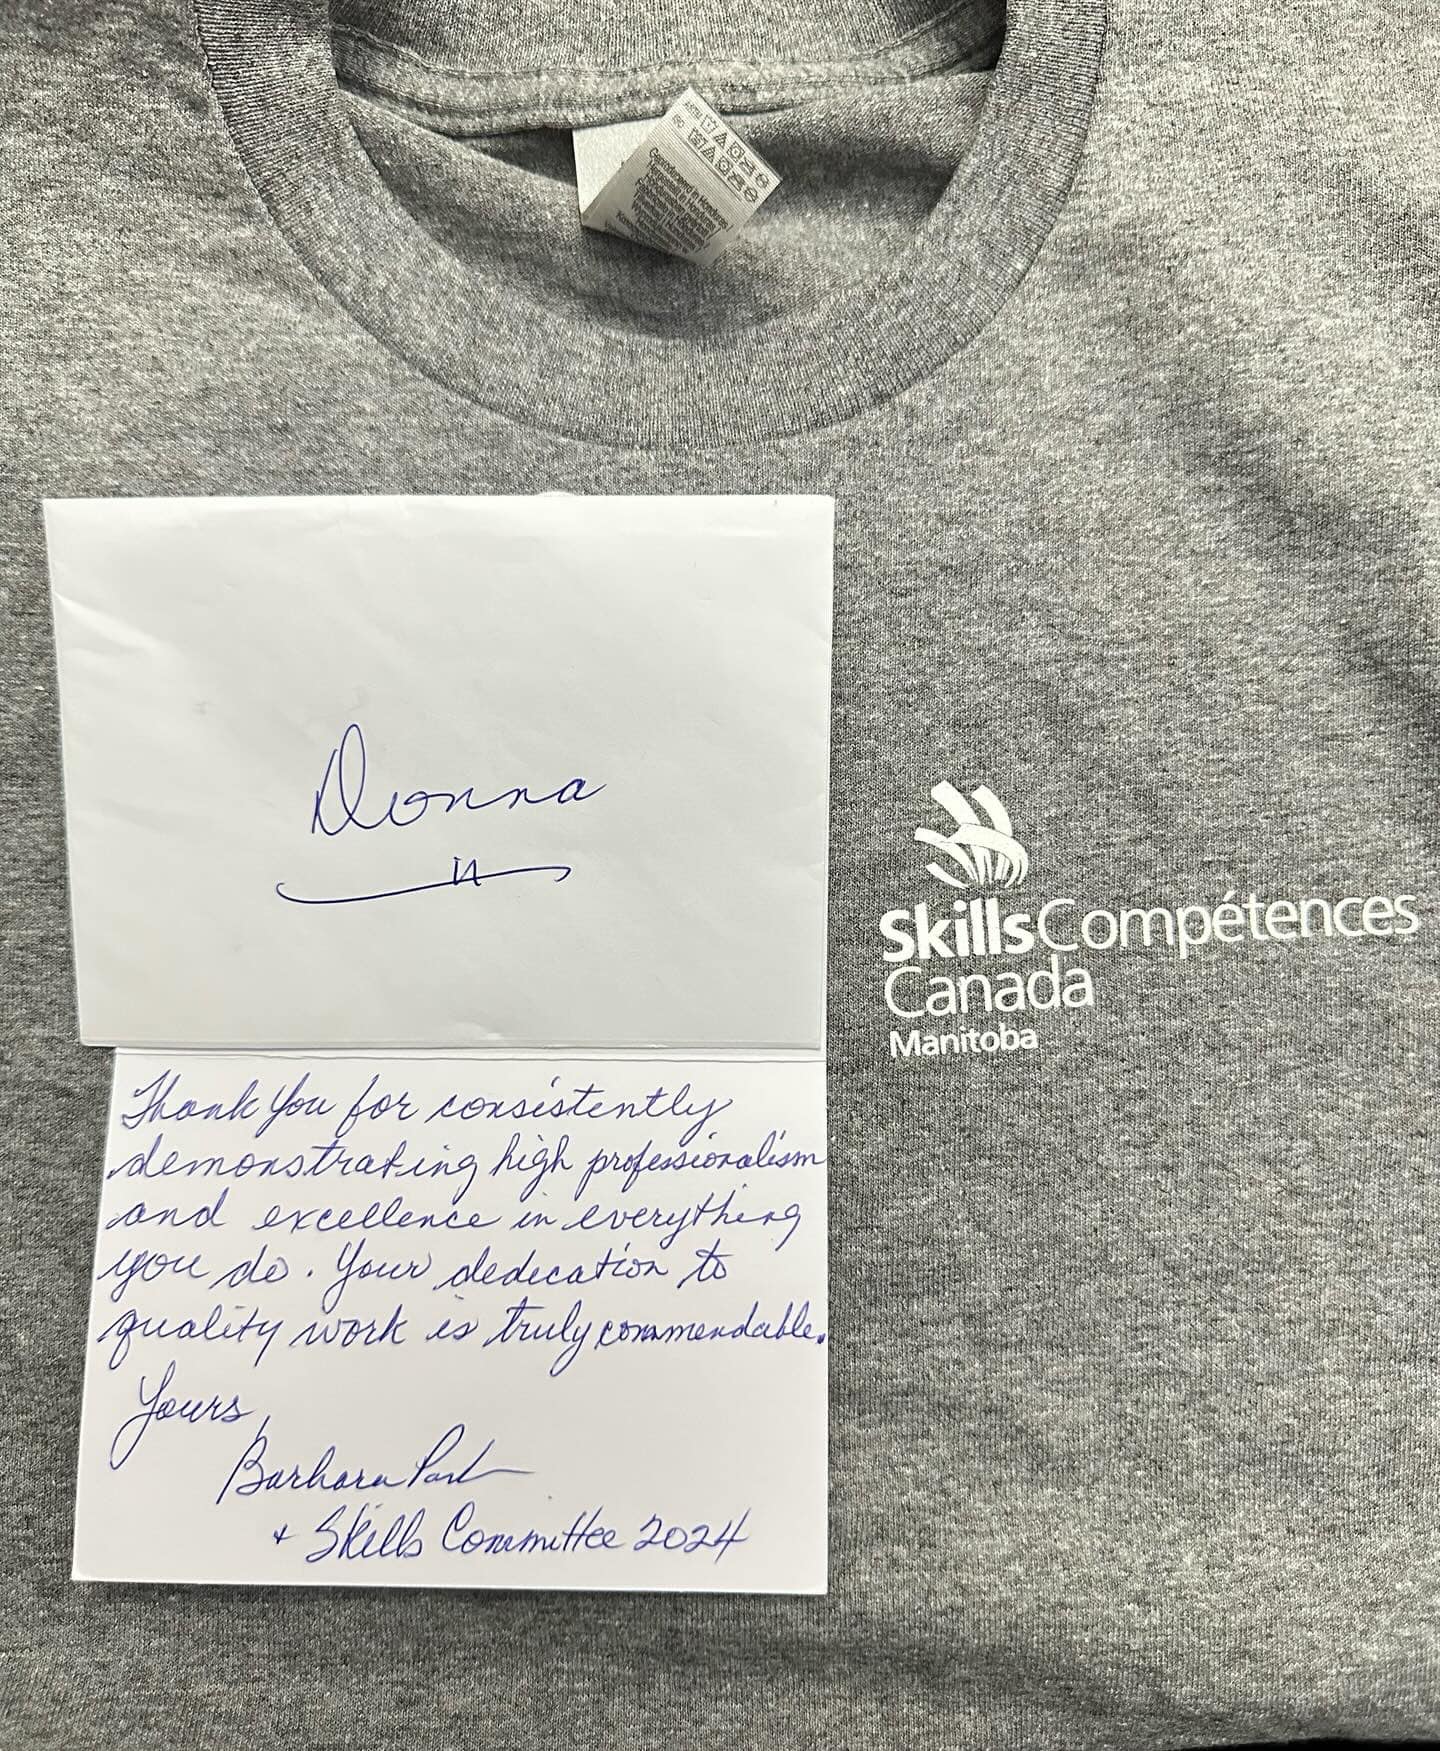 Donna
Skills Compétences
Canada
Manitoba
Thank You for consistently
demonstrating high professionalism
and excellence in everything
you do. Your dedication to
quality work is truly commendable.
Yours,
Barbara
+ Skills Committee 2024